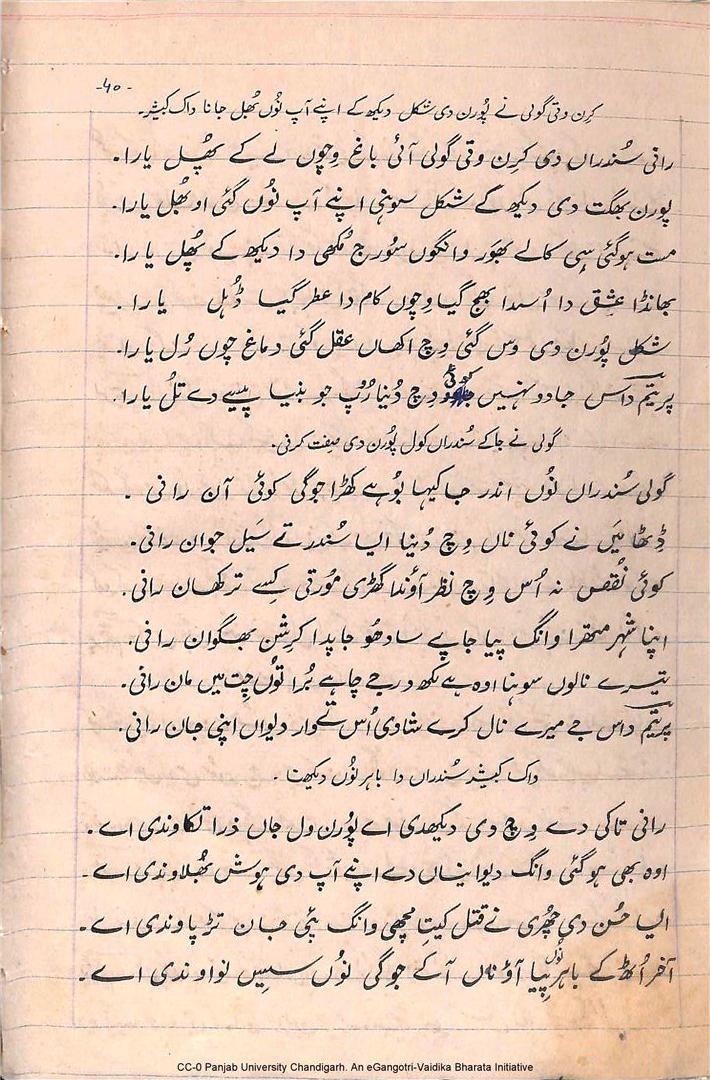 -۴۰-
کرن وتی گولی نے پُورن دی شکل دیکھ کے اپنے آپ نُوں بُھل جانا ڈاک کبیشر۔
رانی سُندراں دی کرن وتی گولی آئی باغ وچوں لے کے پُھل یارا۔
پورن بھگت دی دیکھ کے شکل سوہنی اپنے آپ نُوں گئی او بُھل یارا۔
مست ہوگئی سی کالے بھور وانگوں سُورج مُکھی دا دیکھ کے پُھل یارا۔
بھانڈا عشق دا اُسدا بھج گیا وچوں کام دا عطر گیا ڈُہل یارا۔
شکل پُورن دی وس گئی وچ اکھاں عقل گئی دماغ چوں رُل یارا۔
پریتم داس جادو نہیں کوئی وچ دُنیا رُوپ جو بنیا پیسے دے تُل یارا۔
گولی نے جاکے سُندراں کول پُورن دی صفت کرنی۔
گولی سُندراں نُوں اندر جا کیہا بُوہے کھڑا جوگی کوئی آن رانی ۔
ڈِٹھا میں نے کوئی ناں وچ دُنیا ایسا سُندر تے سیل جوان رانی۔
کوئی نُقص نہ اُس وچ نظر آوَندا گھڑی مُورتی کسے ترکھان رانی۔
اپنا شہر متھرا وانگ پیا جاپے سادھو جاپدا کرشن بھگوان رانی۔
تیرے نالوں سوہنا اوہ ہے لکھ درجے چاہے بُرا تُوں چِت میں مان رانی۔
پریتم داس جے میرے نال کرے شادی اُس تے وار دیواں اپنی جان رانی۔
ڈاک کبیشر سُندراں دا باہر نُوں دیکھنا ۔
رانی تاکی دے وچ دی دیکھدی اے پُورن ول جاں ذرا تکاوندی اے۔
اوہ بھی ہو گئی وانگ دیوانیاں دے اپنے آپ دی ہوش بُھلاوندی اے۔
ایسا حُسن دی چُھری نے قتل کیتا مچھی وانگ پئی جان تڑپاوندی اے۔
آخر اُٹھ کے باہر نُوں پیا آؤناں آکے جوگی نُوں سیس نواوندی اے۔
CC-0 Panjab University Chandigarh. An eGangotri-Vaidika Bharata Initiative